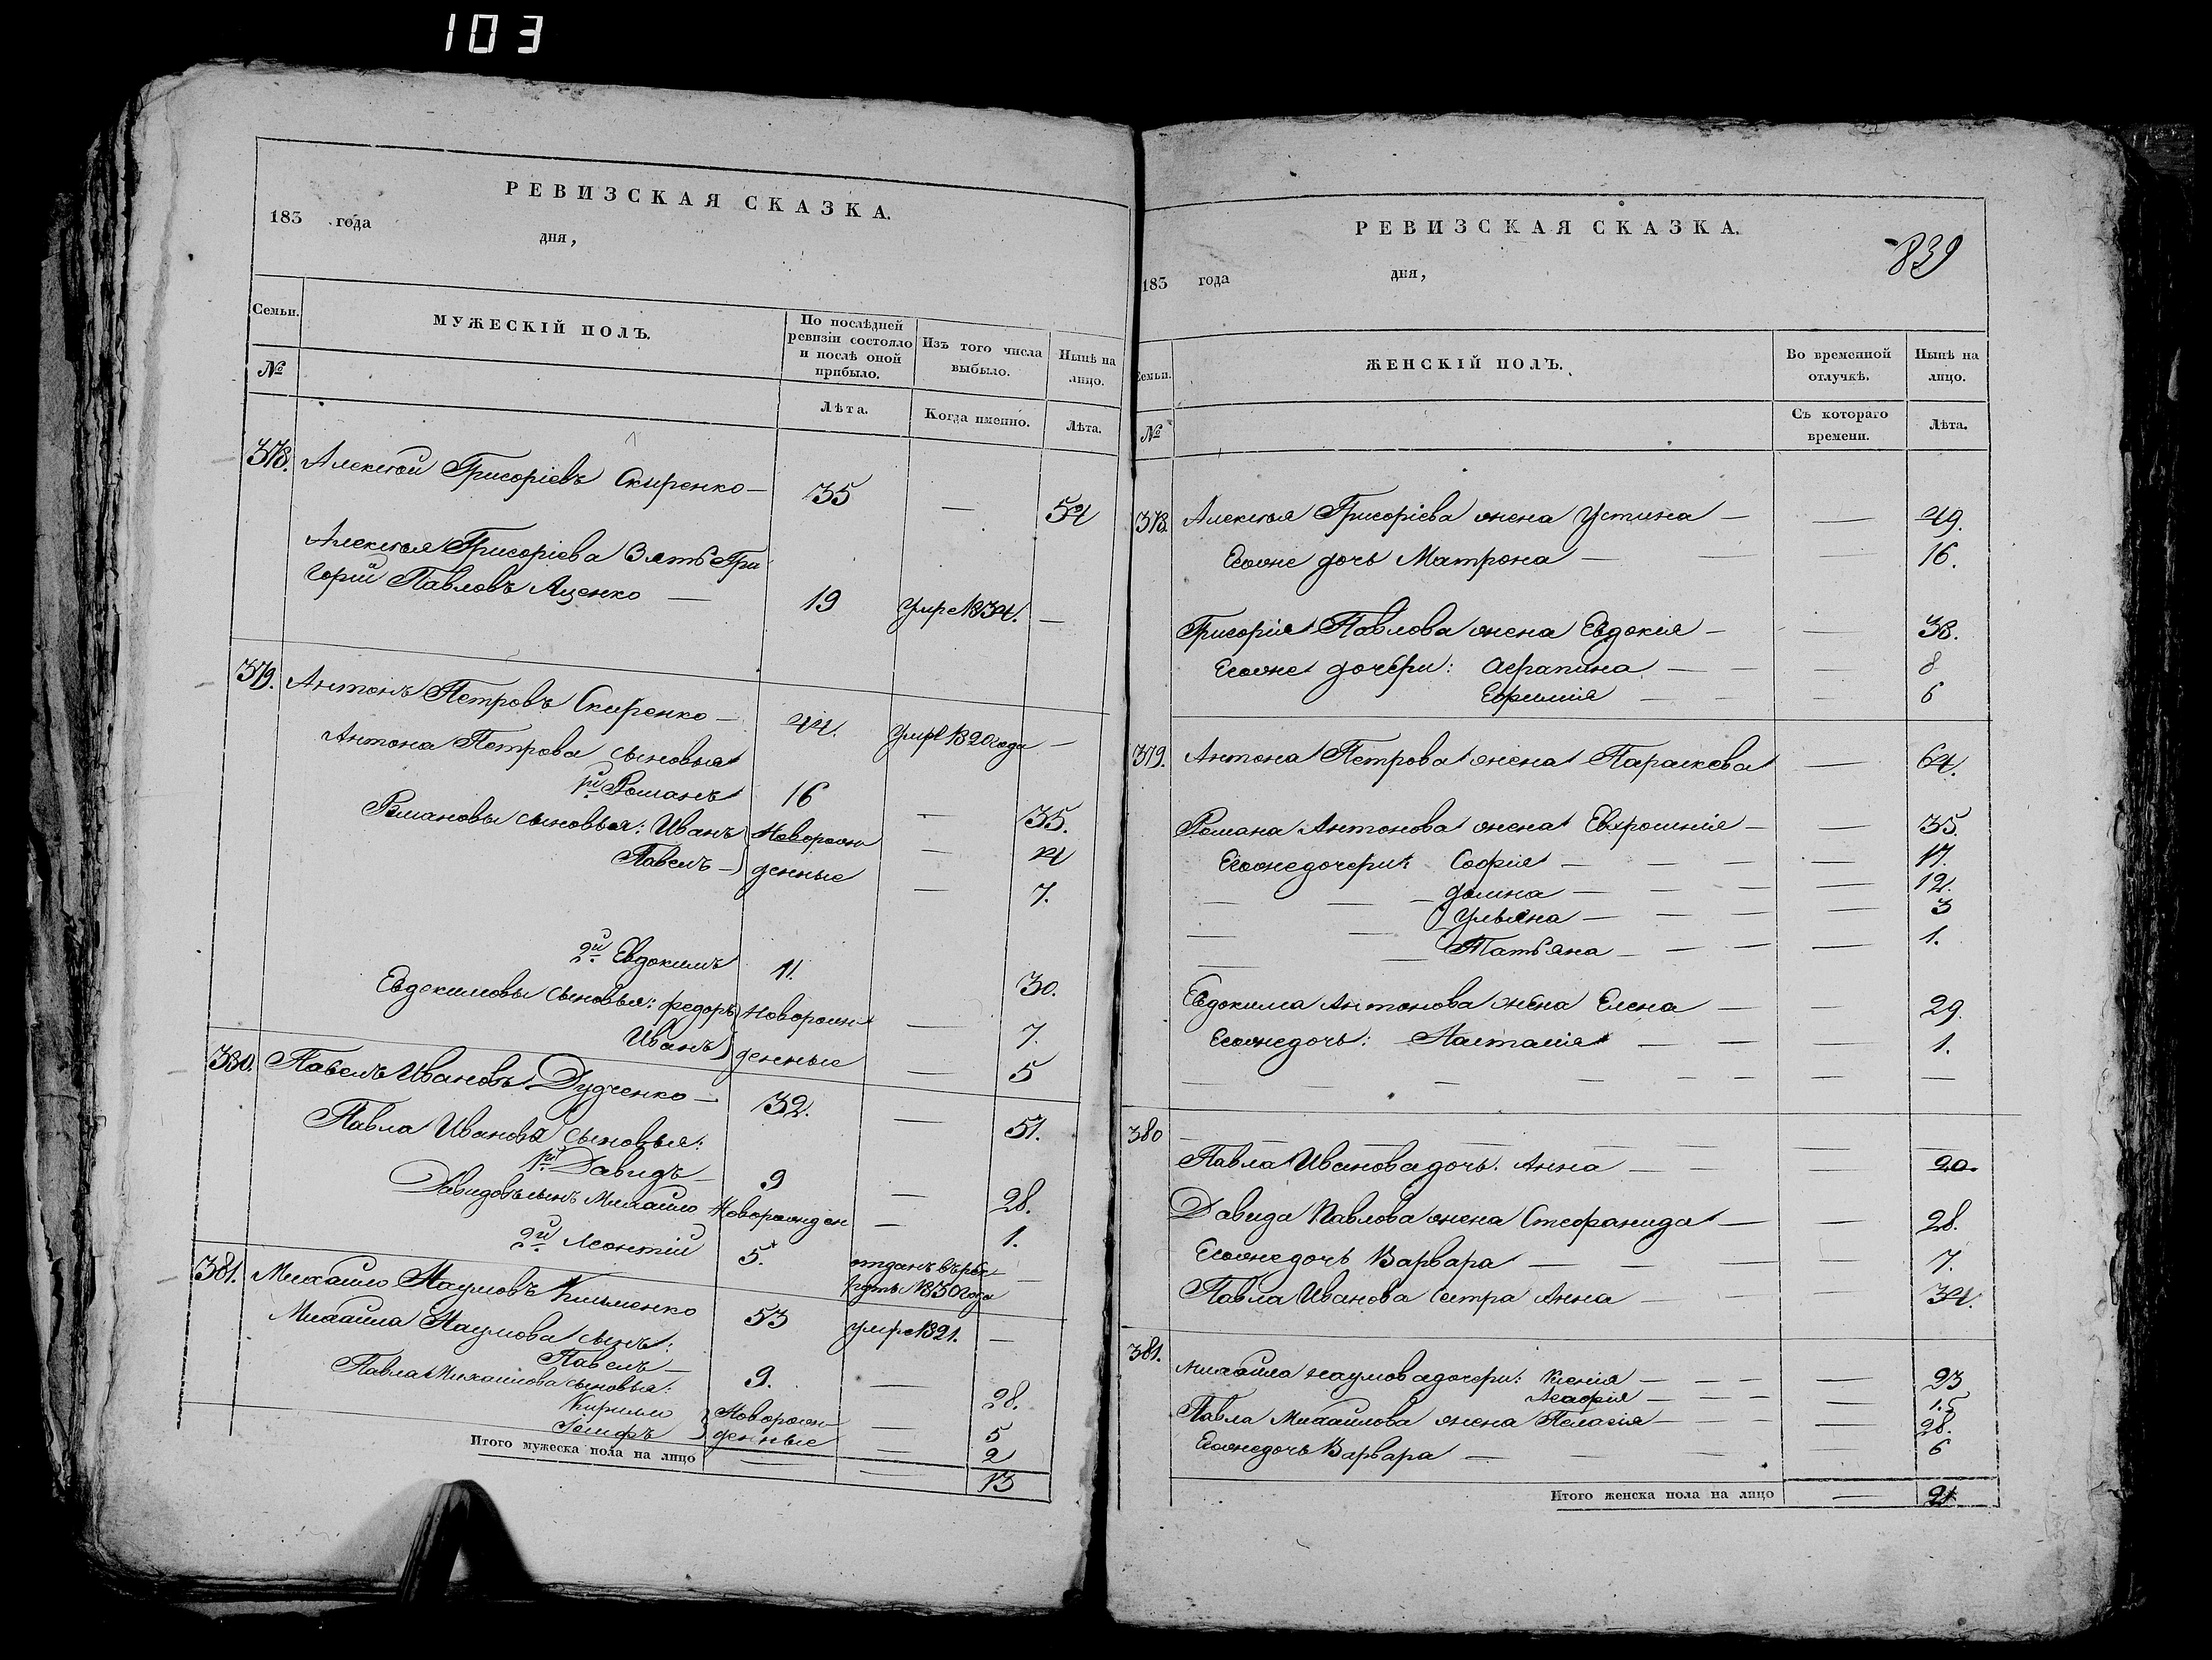 103
РЕВИЗСКАЯ СКАЗКА.
183 года
дня,
Семьи.
МУЖЕСКІЙ ПОЛЪ.
По послѣдней ревизіи состояло и послѣ оной прибыло.
Изъ того числа выбыло.
Нынѣ на лицо.
№
Лѣта.
Когда именно.
Лѣта.
378. Алексѣй Григоріевъ Скиренко — 35 — 54
Алексѣя Григоріева Зять Гри
горій Павловъ Яценко — 19 умре 1834. —
379. Антонъ Петровъ Скиренко — 44. умре 1820 года —
Антона Петрова сыновья
1й Романъ 16 — 35.
Романовы сыновья: Иванъ Новорож — 14
Павелъ — денные — 7.
2й Евдокимъ 11. 30.
Евдокимовы сыновья: Федоръ Новорож — 7.
Иванъ денные — 5
380. Павелъ Ивановъ Дудченко — 32. — 51.
Павла Иванова сыновья:
1й Давидъ — 9 — 28.
Давидовъ сынъ Михайло Новорожден — 1.
2й Леонтій 5. отданъ въ рек
руты 1850 года —
381. Михайло Наумовъ Клименко 53 умре 1821. —
Михайла Наумова сынъ:
Павелъ — 9. — 28.
Павла Михайлова сыновья:
Кирило Новорож — 5
Іосифъ денные — 2
Итого мужеска пола на лицо — — 13
839
РЕВИЗСКАЯ СКАЗКА.
183 года
дня,
Семьи.
ЖЕНСКІЙ ПОЛЪ.
Во временной отлучкѣ.
Нынѣ на лицо.
№
Съ котораго времени.
Лѣта.
378. Алексѣя Григоріева жена Устина — — 49.
Егожие дочь Матрона — — — 16.
Григорія Павлова жена Евдокія — — 38.
Егоже дочери: Аграпина — — — 8
Ефимія — — — 6
379. Антона Петрова жена Параскева — 64.
Романа Антонова жена Евхросинія — — 35.
Егоже дочери: Софія — — — — 17.
— — — Домна — — — — 12.
Ульяна — — — — 3
— — — Татьяна — — — — 1.
Евдокима Антонова жена Елена — — 29.
Егоже дочь: Настасія — — — — 1.
— — — — — —
380 — — — — — — — —
Павла Иванова дочь. Анна — — — 20.
Давида Павлова жена Стефанида — — 28.
Егоже дочь Варвара — — — — 7.
Павла Иванова сестра Анна — — — 34.
381. Михайла Наумова дочери: Ксенія — — — — 23
Агафія — — — — 15
Павла Михайлова жена Пелагія — — — — 28.
Егоже дочь Варвара — — — 6
Итого женска пола на лицо — 21.